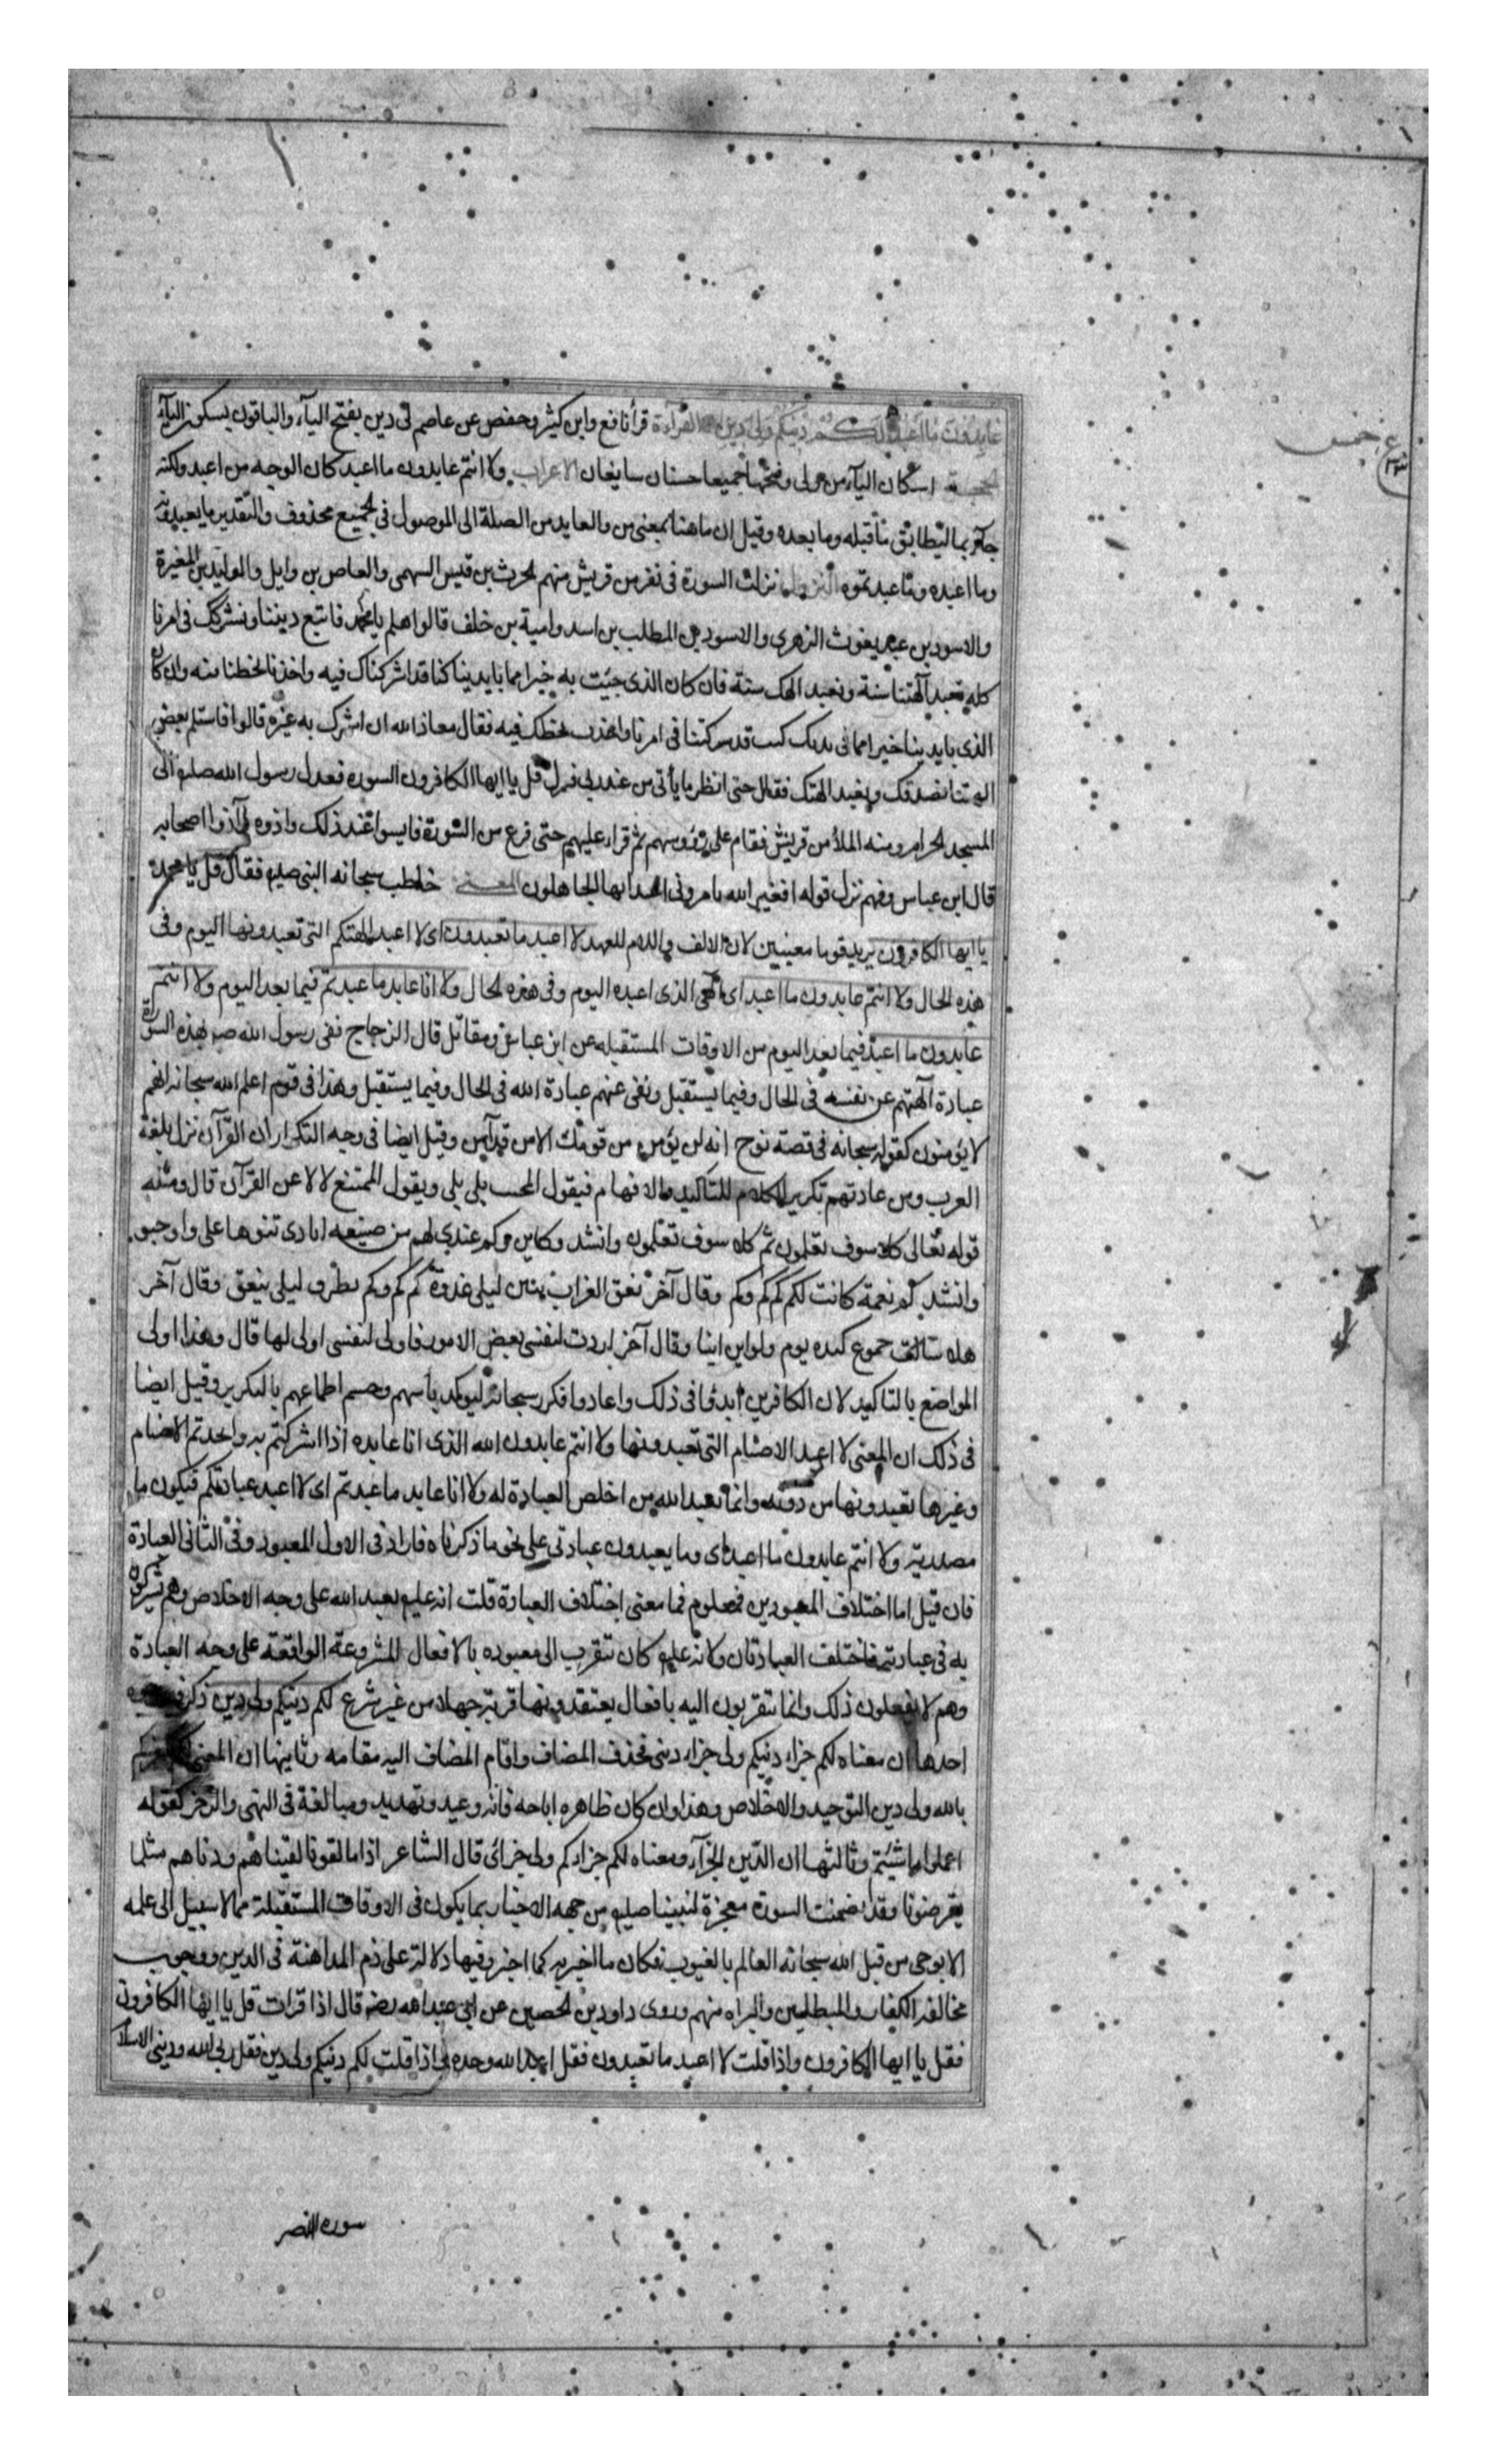 عابدون ما اعبد لكم دينكم ولى دين القراءة قرأ نافع وابن كثير وحفص عن عاصم لى دين بفتح الياء والباقون بسكون الياء
الحجة اسكان الياء من ولى وفتحها جميعا حسنان سايغان الاعراب ولا انتم عابدون ما اعبد كان الوجه من اعبد ولكنه
جاء بما ليطابق ما قبله وما بعده وقيل ان ما هنا بمعنى من والعايد من الصلة الى الموصول فى الجميع محذوف والتقدير ما يعبدونه
وما اعبده وما عبدتموه النزول نزلت السورة فى نفر من قريش منهم الحرث بن قيس السهمى والعاص بن وايل والوليد بن المغيرة
والاسود بن عبد يغوث الزهرى والاسود بن المطلب بن اسد وامية بن خلف قالوا هلم يا محمد فاتبع ديننا ونشركك فى امرنا
كله تعبد آلهتنا سنة ونعبد الهك سنة فان كان الذى جيت به خيرا مما بايدينا كنا قد اشركناك فيه واخذنا بحظنا منه وان كان
الذى بايدينا خيرا مما فى يديك كنت قد شركتنا فى امرنا واخذت بحظك فيه فقال معاذ الله ان اشرك به غيره قالوا فاستلم بعض
الهتنا نصدقك ونعبد الهك فقال حتى انظر ما يأتى من عند ربى فنزل قل يا ايها الكافرون السورة فعدل رسول الله صلعم الى
المسجد الحرام ومنه الملأ من قريش فقام على رؤوسهم ثم قراء عليهم حتى فرغ من السورة فايسوا عند ذلك واذوه وآذوا اصحابه
قال ابن عباس وفيهم نزل قوله افغير الله تامرونى اعبد ايها الجاهلون المعنى خاطب سبحانه النبى صلعم فقال قل يا محمد
يا ايها الكافرون يريد قوما معينين لان الالف واللام للعهد لا اعبد ما تعبدون اى لا اعبد الهتكم التى تعبدونها اليوم وفى
هذه الحال ولا انتم عابدون ما اعبد اى الهى الذى اعبده اليوم وفى هذه الحال ولا انا عابد ما عبدتم فيما بعد اليوم ولا انتم
عابدون ما اعبد فيما بعد اليوم من الاوقات المستقبله عن ابن عباس ومقاتل قال الزجاج نفى رسول الله صر بهذه السورة
عبادة آلهتهم عن نفسه فى الحال وفيما يستقبل ونفى عنهم عبادة الله فى الحال وفيما يستقبل وهذا فى قوم اعلم الله سبحانه انهم
لا يؤمنون كقوله سبحانه فى قصة نوح انه لن يؤمن من قومك الا من قد آمن وقيل ايضا فى وجه التكرار ان القرآن نزل بلغة
العرب ومن عادتهم تكرير الكلام للتاكيد والافهام فيقول المجيب بلى بلى ويقول الممتنع لا لا عن القرآن قال ومثله
قوله تعالى كلا سوف تعلمون ثم كلا سوف تعلمون وانشد وكاين وكم عندى لهم من صنيعه ايادى تنوها على واوجبو
وانشد كم نعمة كانت لكم كم كم وكم وقال آخر نعق الغراب ببين ليلى غدوة كم كم وكم بفراق ليلى ينعق وقال آخر
هلا سالت جموع كنده يوم ولوا اين اينا وقال آخر اردت لنفسى بعض الامور فاولى لنفسى اولى لها قال وهذا اولى
المواضع بالتاكيد لان الكافرين ابدوا فى ذلك واعادوا فكرر سبحانه ليوكد يأسهم وحسم اطماعهم بالتكرير وقيل ايضا
فى ذلك ان المعنى لا اعبد الاصنام التى تعبدونها ولا انتم عابدون الله الذى انا عابده اذا اشركتم به واتخذتم الاصنام
وغيرها تعبدونها من دونه وانما يعبد الله من اخلص العبادة له ولا انا عابد ما عبدتم اى لا اعبد عبادتكم فيكون ما
مصدرية ولا انتم عابدون ما اعبد اى وما يعبدون عبادتى على نحو ما ذكرناه فاراد فى الاول المعبود وفى الثانى العبادة
فان قيل اما اختلاف المعبودين فمعلوم فما معنى اختلاف العبادة قلت انه عليم يعبد الله على وجه الاخلاص وهم يشركون
به فى عبادتهم فاختلف العبادتان ولانه عليم كان تتقرب الى معبوده بالافعال المشروعة الواقعة على وجه العبادة
وهم لا يفعلون ذلك وانما يتقربون اليه بافعال يعتقدونها قربة جهلا من غير شرع لكم دينكم ولى دين ذكر
احدها ان معناه لكم جزاء دينكم ولى جزاء دينى فحذف المضاف واقام المضاف اليه مقامه وثانيها ان المعنى
بالله ولى دين التوحيد والاخلاص وهذا وان كان ظاهره اباحه فانه وعيد وتهديد ومبالغة فى النهى والزجر كقوله
اعملوا ما شئتم وثالثها ان الدين الجزاء ومعناه لكم جزاؤكم ولى جزائى قال الشاعر اذا ما لقونا لقيناهم ودناهم مثلما
يقرضونا وقد تضمنت السورة معجزة لنبينا صليهم من جهه الاخبار بما يكون فى الاوقات المستقبلة مما لا سبيل الى علمه
الا بوحى من قبل الله سبحانه العالم بالغيوب فكان ما اخبر به كما اخبر وفيها دلالة على ذم المداهنة فى الدين ووجوب
مخالفة الكفار والمبطلين والبراه منهم وروى داود بن الحصين عن ابى عبدالله رضه قال اذا قرات قل يا ايها الكافرون
فقل يا ايها الكافرون واذا قلت لا اعبد ما تعبدون فقل اعبد الله وحده اذا قلت لكم دينكم ولى دين فقل ربى الله ودينى الاسلام
سوره النصر